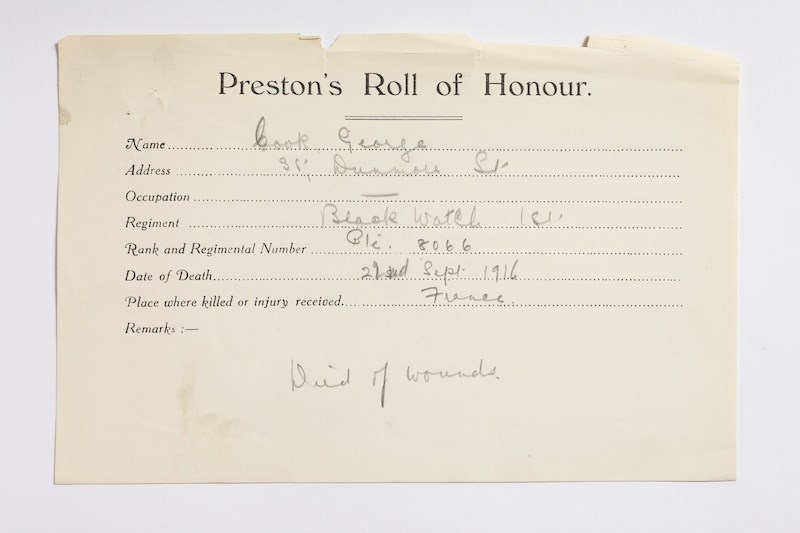 Preston's Roll of Honour.
Name Cook, George
Address 35, Dunmore St
Occupation —
Regiment Black Watch 1st
Rank and Regimental Number Pte. 8066
Date of Death 22nd Sept. 1916
Place where killed or injury received France.
Remarks :—
Died of wounds.